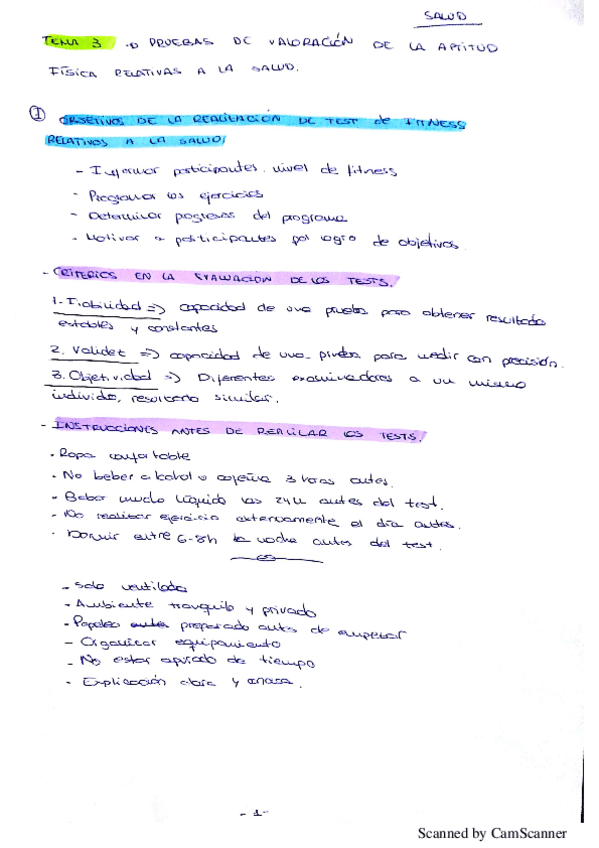 SALUD
TEMA 3 PRUEBAS DE VALORACIÓN DE LA APTITUD
FÍSICA RELATIVAS A LA SALUD.
I OBJETIVOS DE LA REALIZACIÓN DE TEST de FITNESS
RELATIVOS A LA SALUD:
- Informar participantes nivel de fitness
- Programar los ejercicios
- Determinar progresos del programa
- Motivar a participantes por logro de objetivos.
- CRITERIOS EN LA EVALUACIÓN DE LOS TESTS.
1. Fiabilidad => capacidad de una prueba para obtener resultado
estables y constantes
2. Validez => capacidad de una prueba para medir con precisión.
3. Objetividad => Diferentes examinadores a un mismo
individuo, resultado similar.
- INSTRUCCIONES ANTES DE REALIZAR LOS TESTS.
- Ropa confortable
- No beber alcohol o cafeína 3 horas antes.
- Beber mucho líquido las 24h antes del test.
- No realizar ejercicio el día antes.
- Dormir entre 6-8h la noche antes del test.
- Sala ventilada
- Ambiente tranquilo y privado
- Papeleo preparado antes de empezar
- Organizar equipamiento
- No estar apurado de tiempo
- Explicación clara y
- 1 -
Scanned by CamScanner